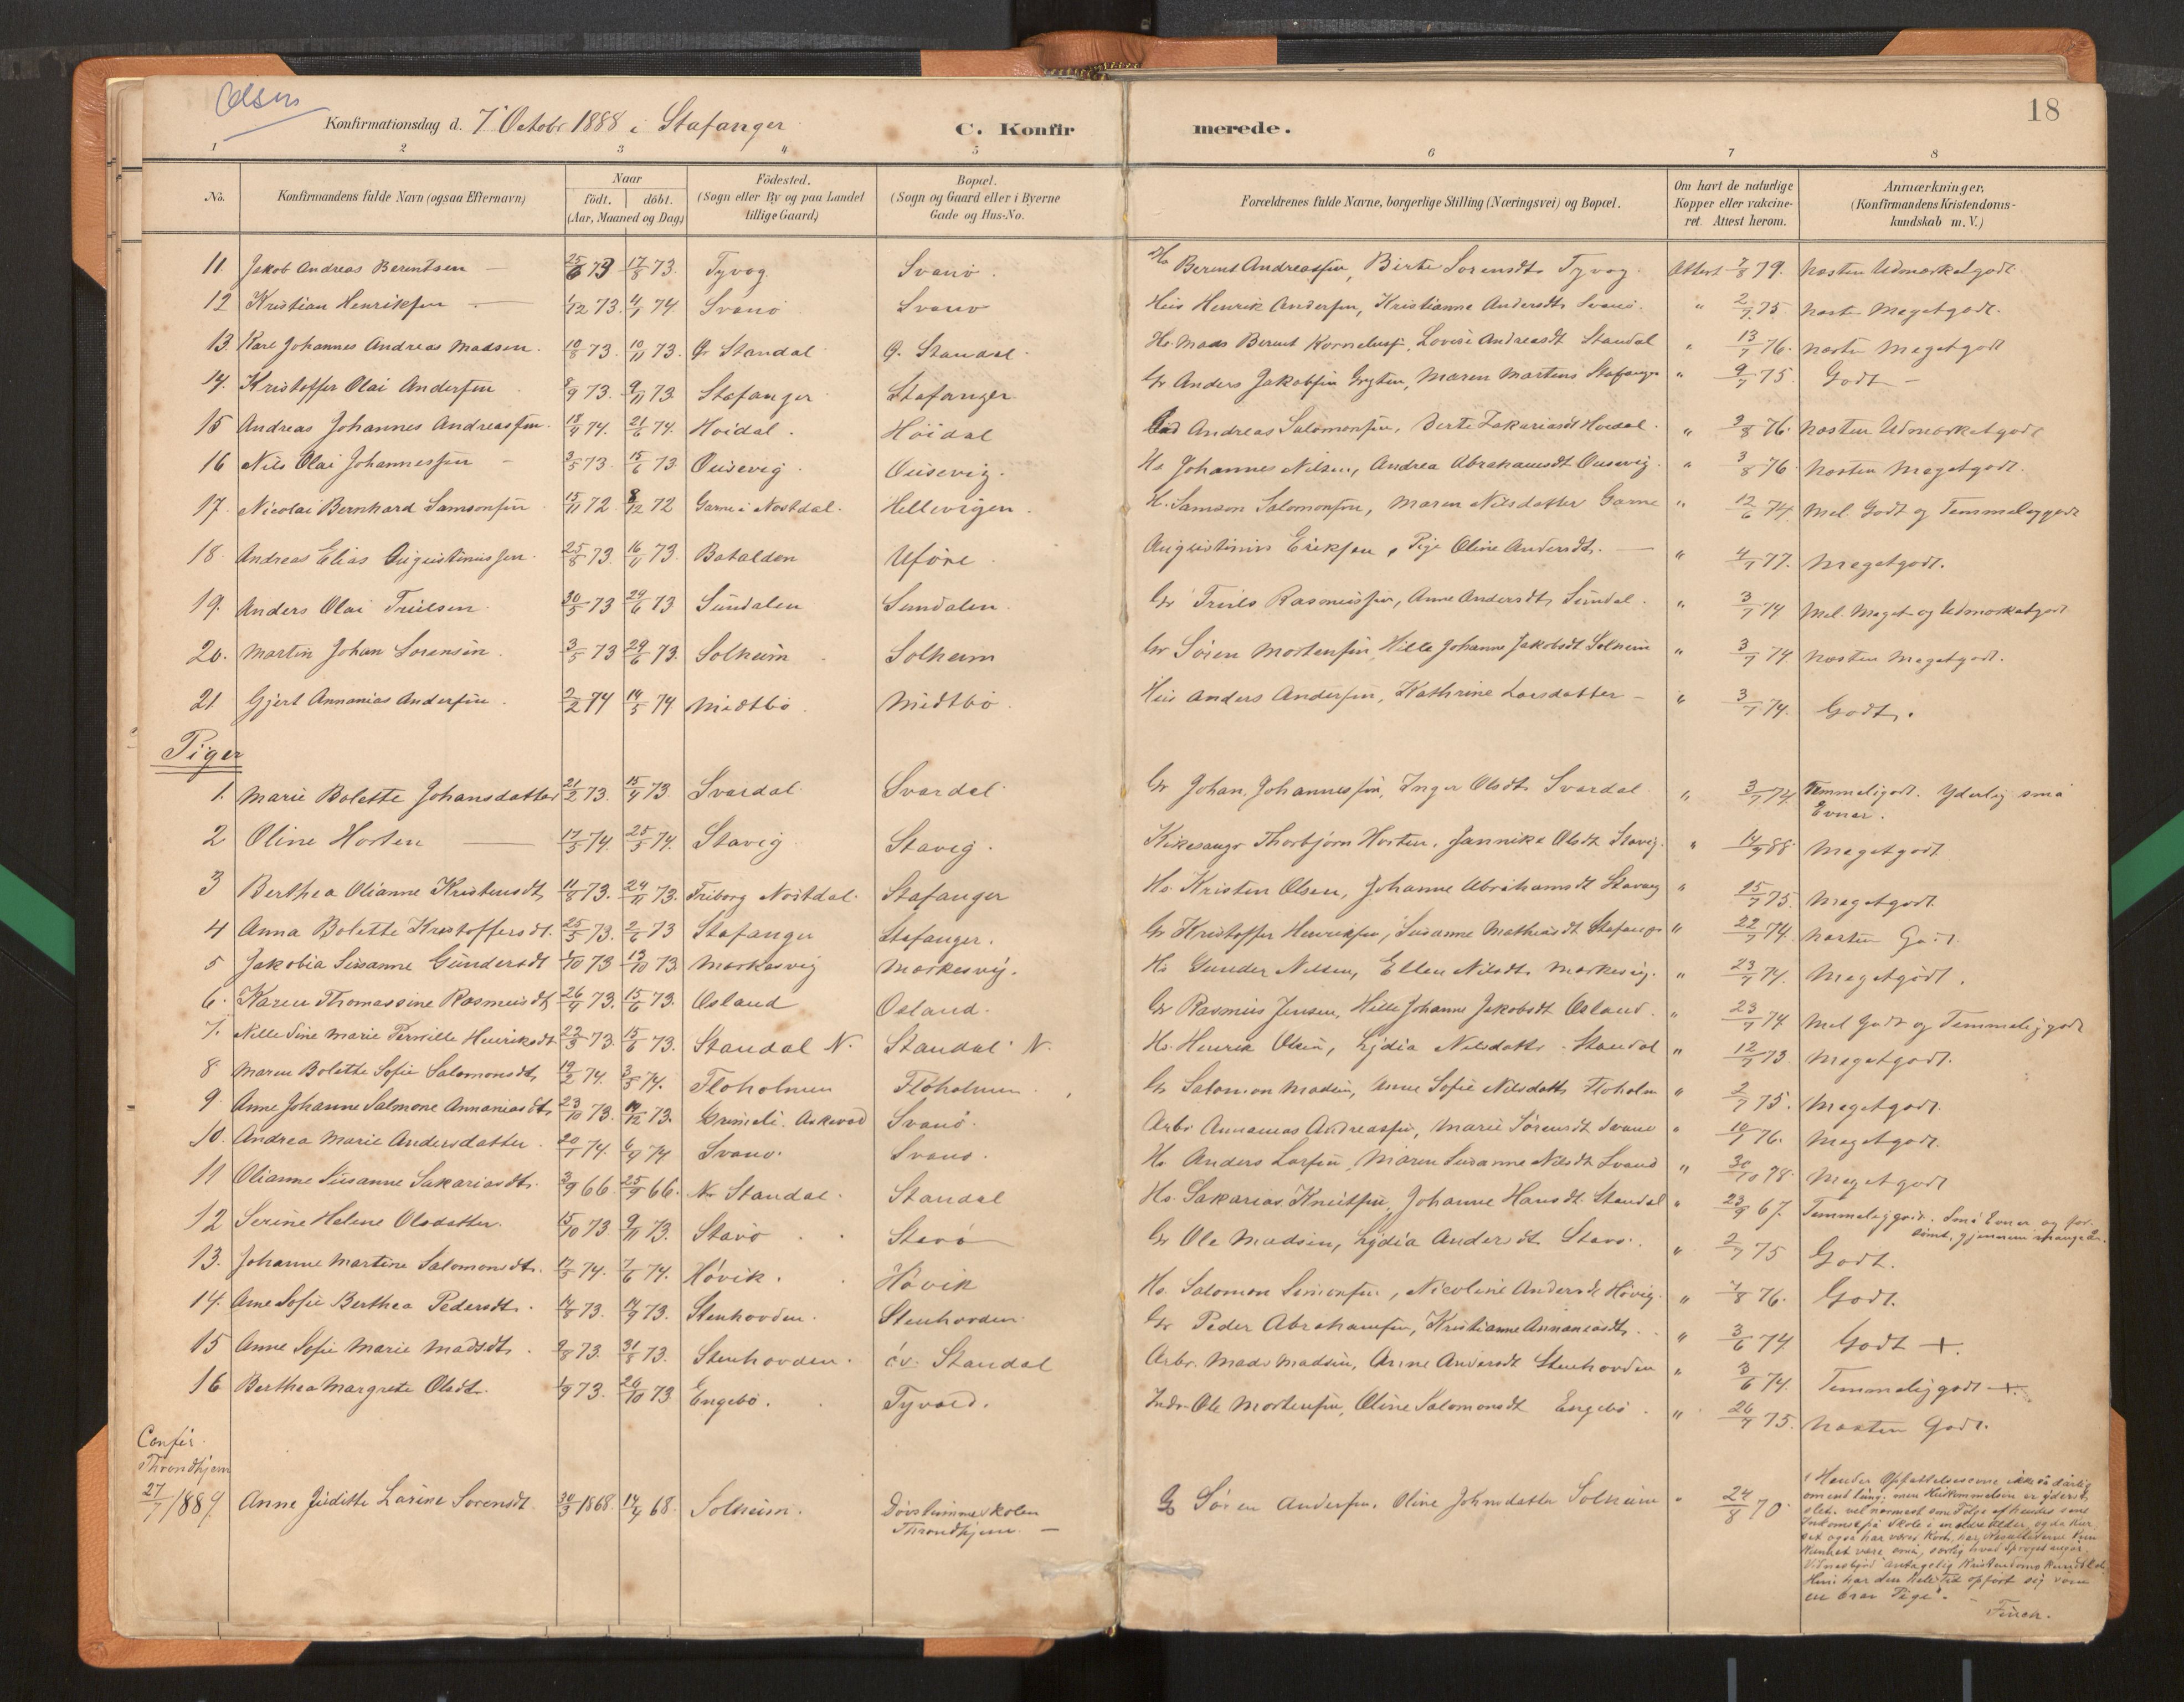 18
Konfirmationsdag d. 7 Octobr 1888 i Stafanger
C. Konfirmerede.
1 2 3 4 5 6 7 8
No. Konfirmandens fulde Navn (ogsaa Efternavn) Naar født. døbt. (Aar, Maaned og Dag) Födested. (Sogn eller By og paa Landet tillige Gaard) Bopæl. (Sogn og Gaard eller i Byerne Gade og Hus-No. Forældrenes fulde Navne, borgerlige Stilling (Næringsvei) og Bopæl. Om havt de naturlige Kopper eller vakcineret. Attest herom. Anmærkninger, (Konfirmandens Kristendomskundskab m. V.)
11. Jakob Andreas Berentsen 25/6 73 17/8 73. Tyvog Svanö. Hs Berent Andreassen, Birte Sorensdtr Tyvog. Attest 7/8 79. Næsten Udmærketgodt.
12 Kristian Henriksen 1/12 73. 4/1 74. Svanö Svanö Hus Henrik Andersen, Kristianne Andersdtr Svanö. " 2/7 75 Næsten Megetgodt.
13. Karl Johannes Andreas Madsen. 10/8 73. 10/11 73. G. Standal G. Standal Hs. Mads Berent Kornelius, Lovise Andreasdt Standal " 13/7 76. næsten Megetgodt
14. Kristoffer Olai Andersen 8/9 73. 9/11 73 Stafanger Stafanger. Gr Anders Jakobsen Gryten, Maren Martens Stafanger " 9/7 75. Godt
15 Andreas Johannes Andreassen. 18/4 74. 21/6 74. Höidal. Höidal Andreas Salomonsen, Berte Zakariasdt Hoidal. " 3/8 76. Næsten Udmærketgodt
16 Nils Olai Johannessen 3/5 73. 15/6 73 Ousevig. Ousevig. Hs Johannes Nilsen, Andrea Abrahamsdt Ousevig. " 3/8 76 Næsten Megetgodt.
17. Nicolai Bernhard Samsonsen 15/11 72 8/12 72 Garne i Nostdal. Hellevigen. H. Samson Salomonsen, Maren Nilsdatter Garne " 12/6 74 Mel. Godt og Temmeliggodt
18. Andreas Elias Augustinussen. 25/8 73. 16/11 73. Batalden Uföre Augustinus Eriksen, Pige Oline Andersdt. " 4/7 77. Megetgodt.
19. Anders Olai Truelsen. 30/5 73 29/6 73 Sundalen Sundalen. Gr Truels Rasmussen, Anne Andersdtr Sundal. " 3/7 74 Mel. Meget og Udmærketgodt
20. Martin Johan Sorensen. 3/5 73 29/6 73. Solheim Solheim Gr Sören Mortensen, Hille Johanne Jakobsdt Solheim " 3/7 74 Næsten Megetgodt.
21 Gjert Annanias Andersen. 2/2 74 14/5 74 Midtbö. Midtbö. Hus Anders Andersen, Kathrine Larsdatter " 3/7 74. Godt.
Piger
1. Marie Bolette Johansdatter 21/2 73. 15/4 73. Svardal. Svardal Gr Johan Johannessen, Inger Olsdt Svardal " 3/7 74. Temmeligodt. Yderlig små Evner.
2 Oline Horten 17/3 74. 25/5 74. Stavig Staveg. Kirkesangr Thorbjörn Horten, Jannike Olsdt Stavig. " 14/9 88. Megetgodt
3 Berthea Olianne Kristensdt. 11/8 73. 24/11 73. Friborg Nöstdal. Stafanger Hs. Kristen Olsen, Johanne Abrahamsdt Stavang " 15/7 75. Megetgodt.
4 Anna Bolette Kristoffersdt. 25/5 73. 2/6 73 Stafanger Stafanger. Gr Kristoffer Henriksen, Susanne Mathiasdt Stafanger " 22/7 74. Næsten Godt.
5 Jakobia Susanne Gundersdt 1/10 73 13/10 73 Markesvig Markesvig. Hs Gunder Nilsen, Ellen Nilsdtr Markesvig. " 23/7 74. Megetgodt.
6. Karen Thomassine Rasmusdt. 26/4 73. 15/6 73. Osland Osland. Gr Rasmus Jensen, Hille Johanne Jakobsdt Osland. " 23/7 74 Mel Godt og Temmeliggodt
7. Nille Sine Marie Pernille Henriksdt 22/3 73. 15/6 73. Standal N. Standal N. Hs. Henrik Olsen, Lydia Nilsdattr Standal " 12/7 73. Megetgodt.
8 Maren Bolette Sofie Salomonsdt. 19/2 74. 3/5 74. Floholmen Floholmen Gr Salomon Madsen, Anne Sofie Nilsdattr Floholm " 2/7 75. Megetgodt.
9 Anne Johanne Salmone Annaniasdtr. 23/10 73. 14/12 73. Grimeli. Askevold Svanö. Arbr Annanias Andreassen, Marie Sörensdt Svanö " 10/7 76. Megetgodt.
10. Andrea Marie Andersdatter. 20/1 74. 6/4 74 Svanö. Svanö. Hs Anders Larsen, Maren Susanne Nilsdt Svanö " 30/10 78. Megetgodt
11 Olianne Susanne Sakariasdtr. 3/9 66 25/9 66. Nr Standal. Standal Hs. Sakarias Knutsen, Johanne Hansdt Standal " 23/9 67. Temmeliggodt. Små Evner og forsömt, gjennem mange år.
12 Serine Helene Olsdatter. 15/10 73 9/11 73. Stavö. Stavö Gr Ole Madsen, Lydia Andersdt Stavö. " 2/7 75 Godt.
13. Johanne Martine Salomonsdtr. 17/5 74. 7/6 74. Hövik. Hövik Hs. Salomon Simonsen, Nicoline Andersdt Hövig. " 7/8 76. Godt.
14. Ane Sofie Berthea Pedersdt. 14/8 73. 14/9 73. Stenhovden. Stenhovden. Gr Peder Abrahamsen, Kristianne Annaniasdtr. " 3/6 74 Godt +.
15 Anne Sofie Marie Madsdtr. 2/8 73. 31/8 73. Stenhovden. öv. Standal Arbr. Mads Madsen, Anne Andersdt Stenhovden " 3/6 74. Temmeliggodt +.
16 Berthea Margrete Olsdt. 1/9 73. 26/10 73 Engebö. Tyvold. Indr. Ole Mortensen, Oline Salomonsdt Engebö. " 26/7 75. Næsten Godt.
Confir.
i Throndhjem
27/7 1889. Anne Juditte Larine Sorensdt. 30/3 1868. 14/4 68. Solheim. Dövstummeskolen Throndhjem. Gr Sören Andersen, Oline Johnsdatter Solheim " 24/8 70.
"Hendes Opfattelsesevne ikke så dårlig
om end tung; men Hukommelsen er yderst
slet, vel nærmest som Følge af hendes sene
Indkomst på Skole i en ældre alder, og da Kurset
også har været kort, har Resultaterne kun
kunnet være små, særlig hvad Sproget angår.
antagelig Kristendomskundskab.
Hun har den hele Tid opført sig som
en brav Pige".
Finch.